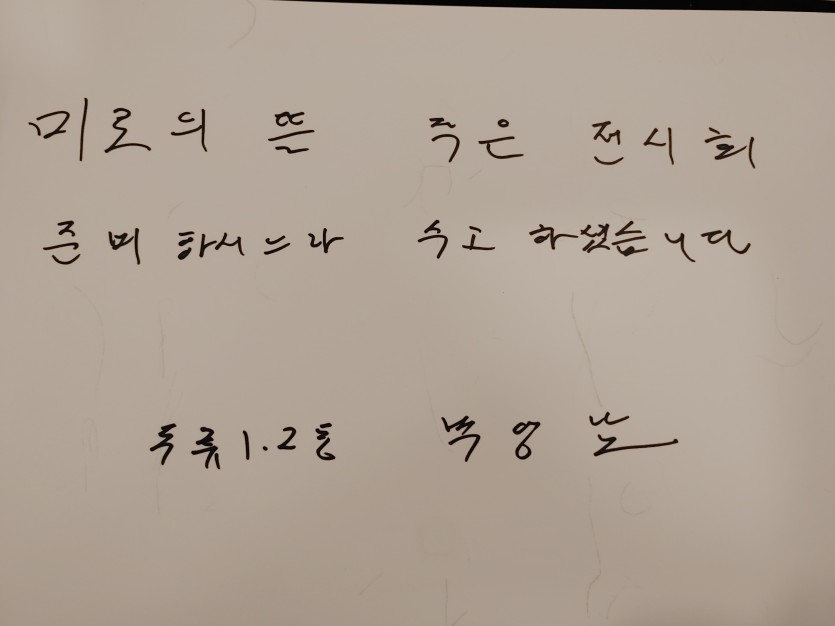 미로의 뜰 작은 전시회
준비하시느라 수고 하셨습니다
1.2동